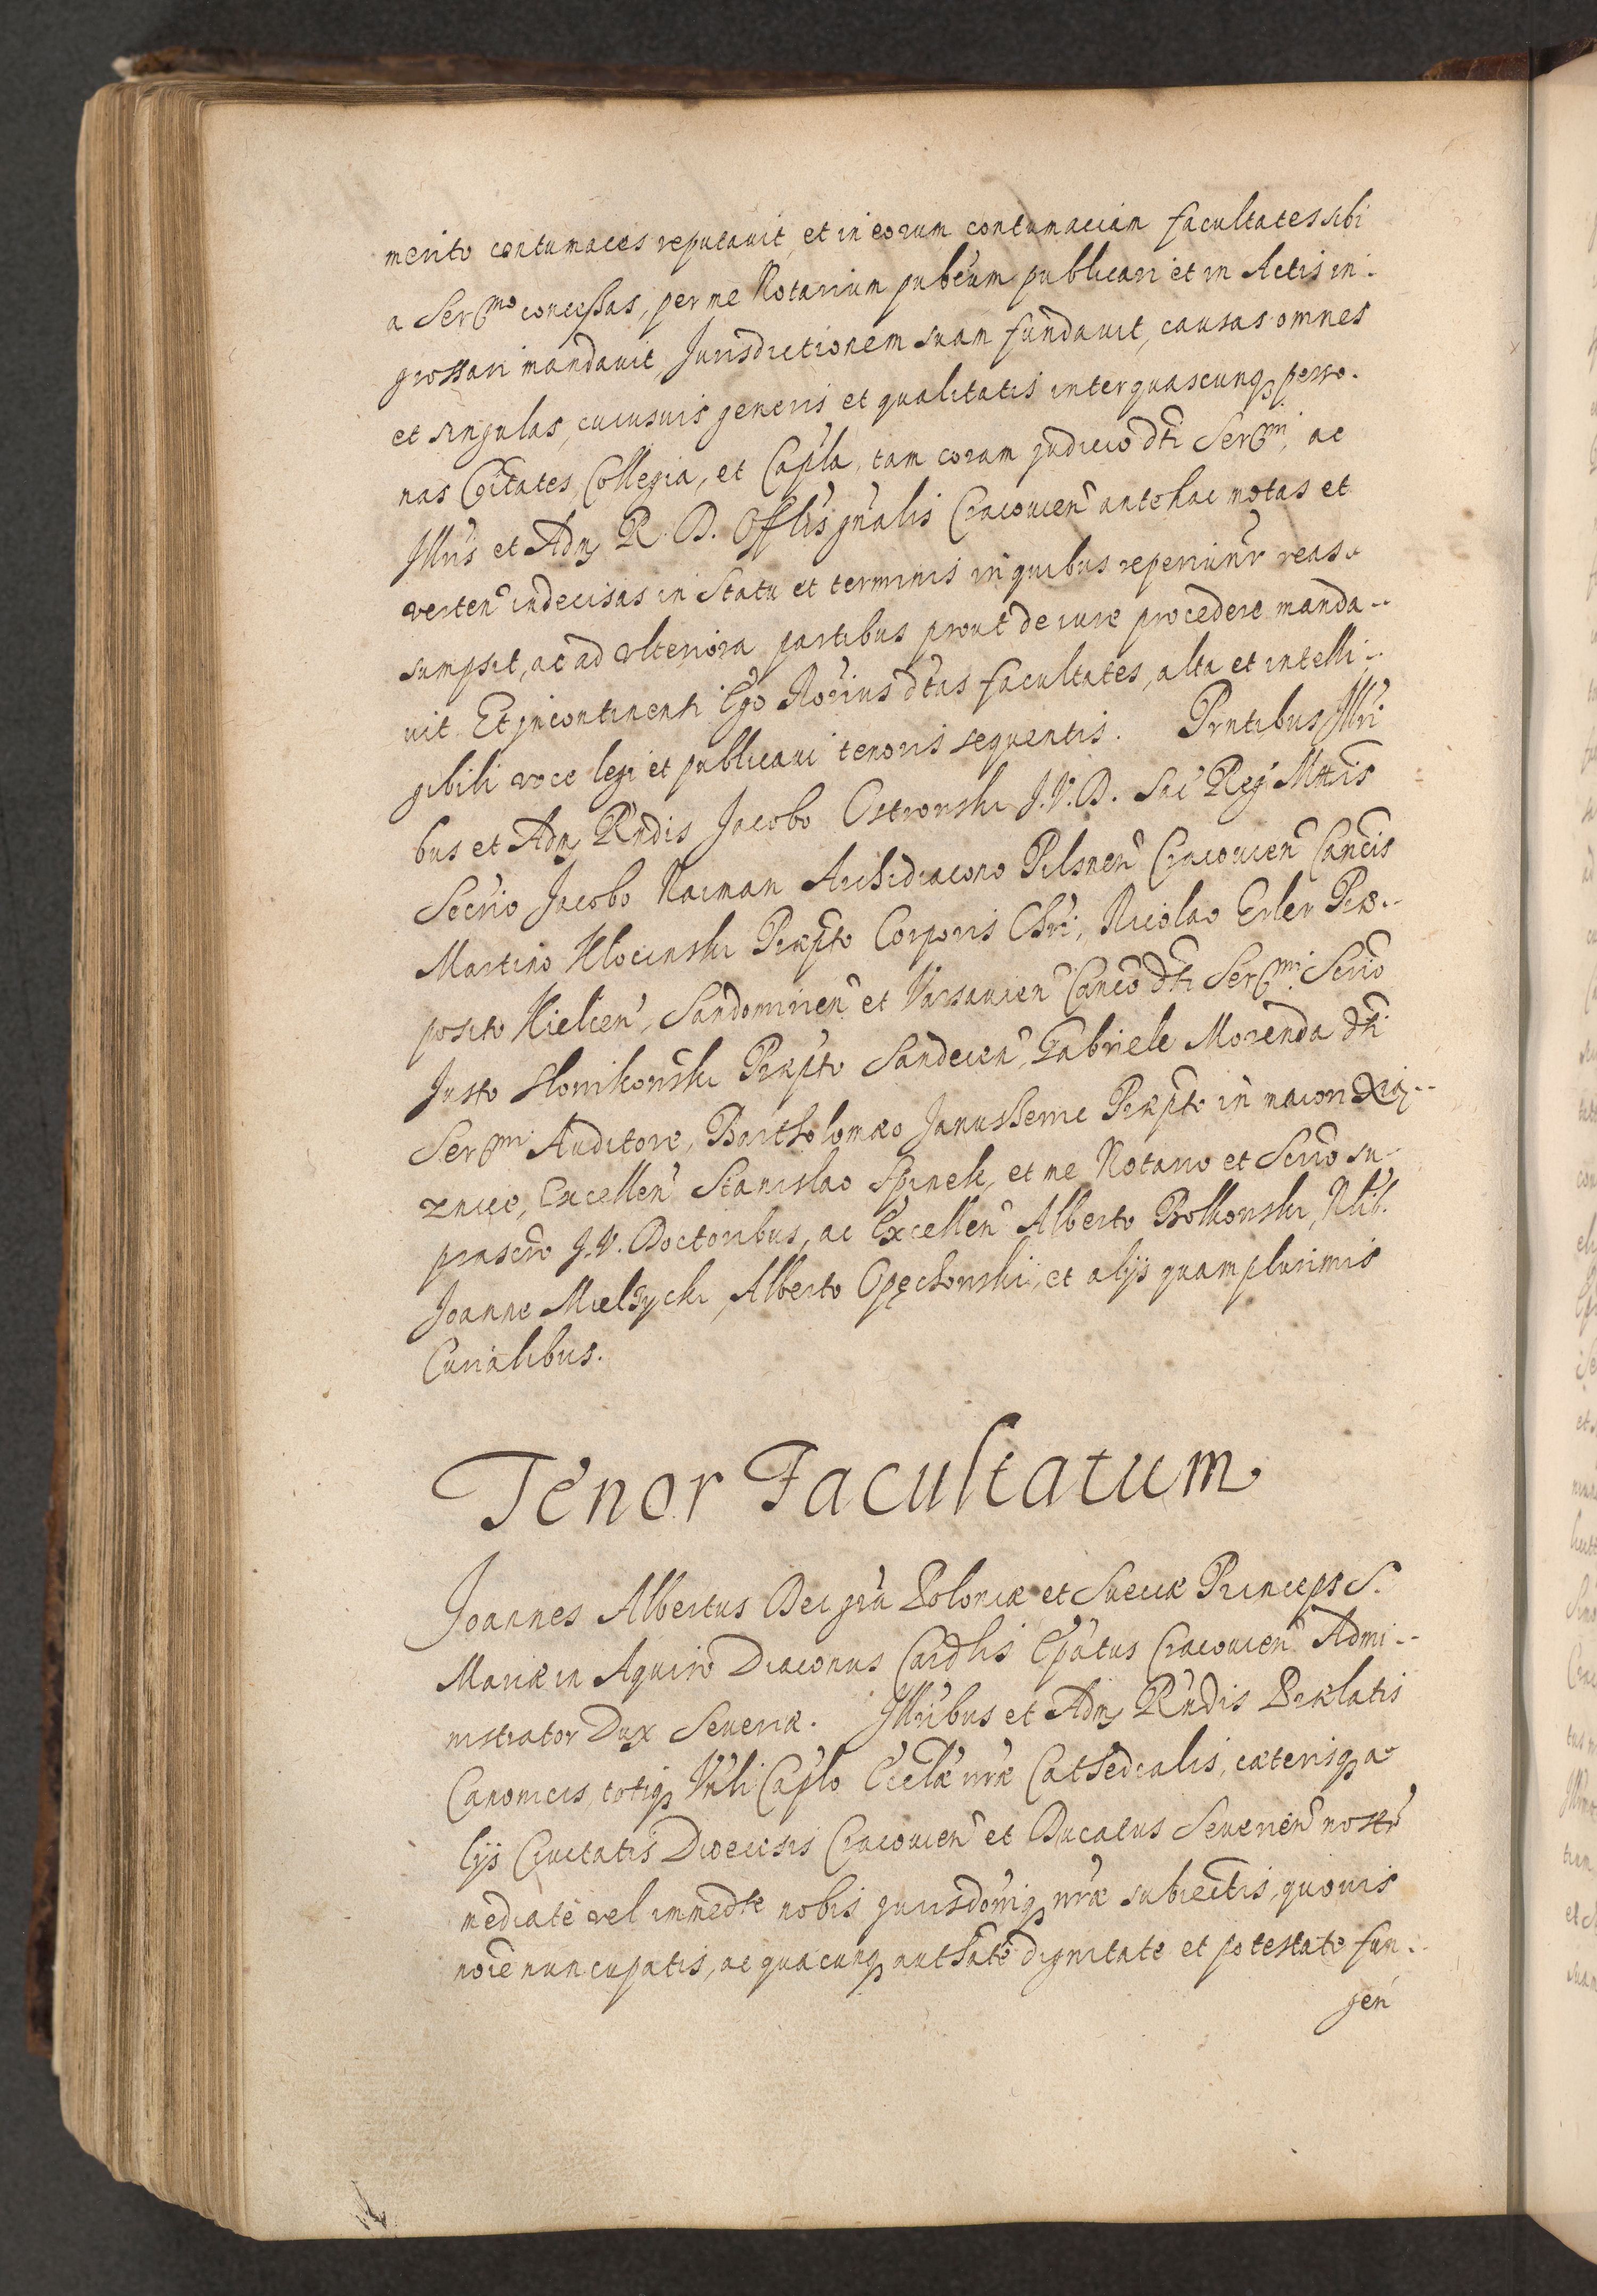 merito contumaces reputauit, et in eorum contumaciam facultates sibi
a Sermo concessas, per me Notarium pubcum publicari et in Actis in-
grossari mandauit, Jurisdictionem suam fundauit, causas omnes
et singulas, cuiusuis generis et qualitatis inter quascunq perso-
nas Coitates, Collegia, et Capla, tam coram judicio dti Sermi, ac
Illris et Adm R. D. Offlis gnalis Cracouien antehac motas et
verten indecisas in Statu et terminis in quibus reperiuntr reas-
sumpsit, ac ad vlteriora partibus prout de iure procedere manda-
uit. Et incontinenti Ego Norius dtas facultates, alta et intelli-
gibili voce legi et publicaui tenoris sequentis. Pntibus Illri
bus et Adm Rndis Jacobo Ostrowski J.V.D. Sac Reg Mttis
Secrio Jacobo Naiman Archidiacono Pilsnen Cracouien Cancis
Martino Kłocinski Præpto Corporis Chri, Nicolao Erler Præ-
posito Kielcen, Sandomirien et Varsauien Canco dti Sermi Scrio
Justo Słowikowski Præpto Sandecen, Gabriele Morenda dti
Sermi Auditore, Bartholomæo Janussewic Præpto in maiori Xią-
znice, Excellen Stanislao Spinek, et me Notario et Scrio su-
prascro J.V. Doctoribus, ac Excellen Alberto Bolkowski, Nlib.
Joanne Mielzycki, Alberto Opęchowski, et alijs quam plurimis
Curialibus.
Tenor Facultatum
Joannes Albertus Dei gra Poloniæ et Sueciæ Princeps S.
Mariæ in Aquiro Diaconus Cardlis Epatus Cracouien Admi-
nistrator Dux Seueriæ. Illribus et Adm Rndis Prælatis
Canonicis, totiq Vnli Caplo Eccłæ nræ Cathedralis, cæterisq a-
lijs Ciuitatis Dioecisis Cracouien et Ducatus Seuerien nostr
mediate vel immedte nobis jurisdoniq nræ subiectis, quouis
noie nuncupatis, ac quacunq authate dignitate et potestate fun-
gen